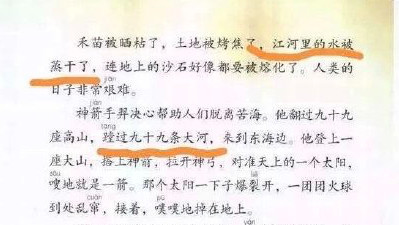 禾苗被晒枯了，土地被烤焦了，江河里的水被
蒸干了，连地上的沙石好像都要被熔化了。人类的
jiān
日子非常艰难。
神箭手羿决心帮助人们脱离苦海。他翻过九十九
tāng
座高山，蹚过九十九条大河，来到东海边。他登上一
座大山，搭上神箭，拉开神弓，对准天上的一个太阳，
sōu
嗖地就是一箭。那个太阳一下子爆裂开，一团团火球
cuàn pū
到处乱窜，接着，噗噗地掉在地上。